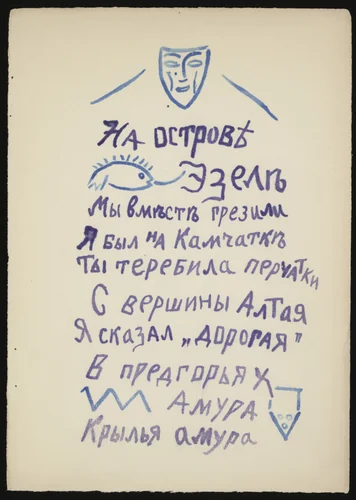 На островѣ
Эзелѣ
Мы вмѣстѣ грезили
Я был на Камчаткѣ
Ты теребила перчатки
С вершины Алтая
Я сказал „дорогая"
В предгорьях
Амура
Крылья амура